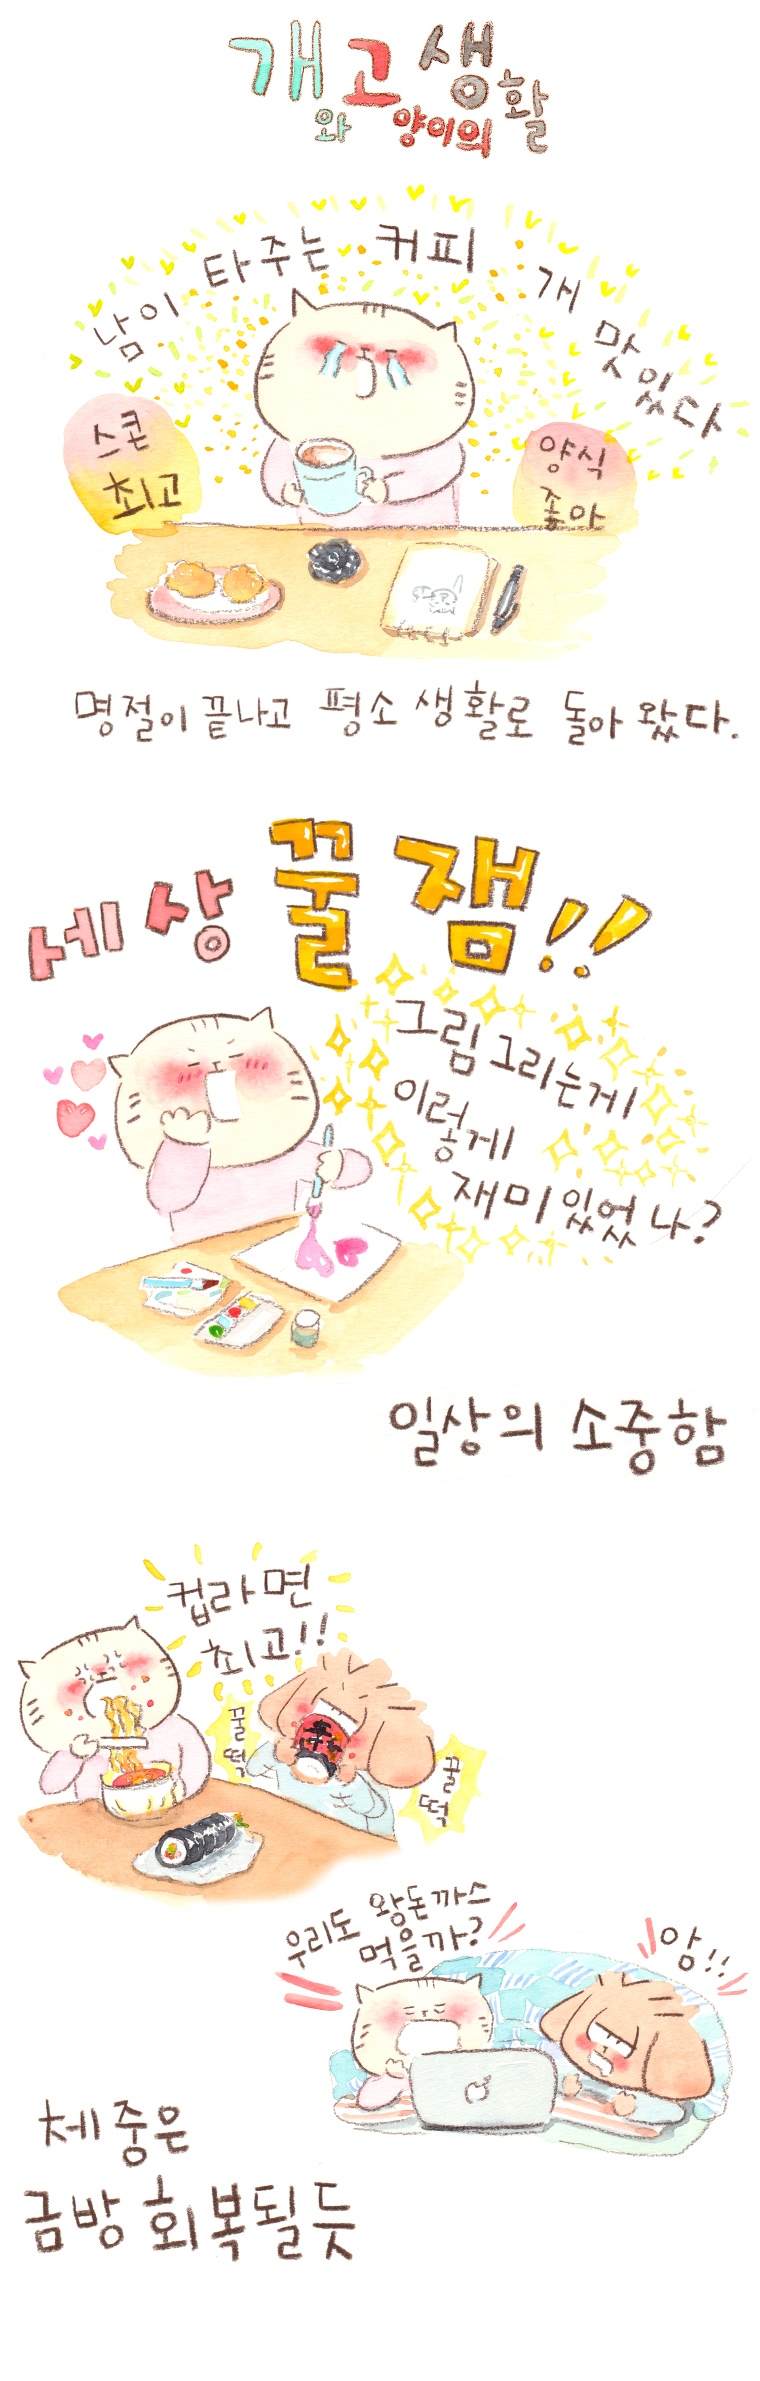 개와 고양이의 생활
남이 타주는 커피 개 맛있다
스콘
최고
양식
좋아
명절이 끝나고 평소 생활로 돌아 왔다.
세상 꿀잼!!
그림 그리는게
이렇게
재미있었나?
일상의 소중함
컵라면
최고!!
꿀
떡
꿀
떡
우리도 왕돈까스
먹을까?
암!!
체중은
금방 회복될듯